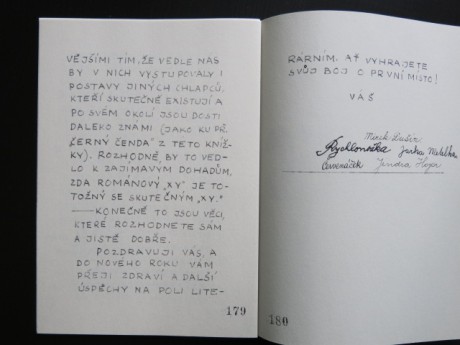 VĚJŠÍMI TÍM, ŽE VEDLE NÁS
BY V NICH VYSTUPOVALY I
POSTAVY JINÝCH CHLAPCŮ,
KTEŘÍ SKUTEČNĚ EXISTUJÍ A
PO SVÉM OKOLÍ JSOU DOSTI
DALEKO ZNÁMI (JAKO KU PŘ.
„ČERNÝ ČENDA" Z TÉTO KNÍŽ-
KY). ROZHODNĚ, BY TO VED-
LO K ZAJÍMAVÝM DOHADŮM,
ZDA ROMÁNOVÝ „XY" JE TO-
TOŽNÝ SE SKUTEČNÝM „XY."
—— KONEČNĚ TO JSOU VĚCI,
KTERÉ ROZHODNETE SÁM
A JISTĚ DOBŘE.
POZDRAVUJI VÁS, A
DO NOVÉHO ROKU VÁM
PŘEJI ZDRAVÍ A DALŠÍ
ÚSPĚCHY NA POLI LITE-
179
RÁRNÍM. AŤ VYHRAJETE
SVŮJ BOJ O PRVNÍ MÍSTO!
VÁŠ
Mirek Dušín
Rychlonožka Jarka Metelka
Červenáček Jindra Hojer
180